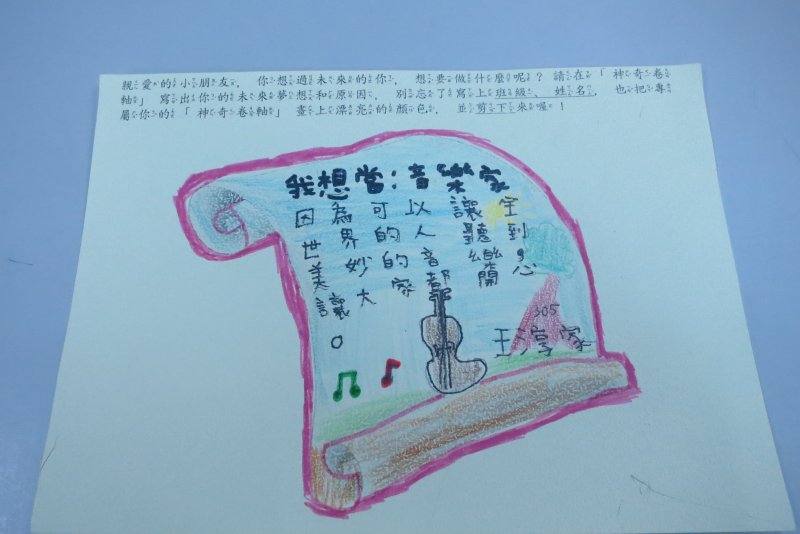 親愛的小朋友，你想過未來的你，想要做什麼呢？請在「神奇卷
軸」寫出你的未來夢想和原因，別忘了寫上班級、姓名，也把專
屬你的「神奇卷軸」畫上漂亮的顏色，並剪下來喔！
我想當：音樂家
因為可以讓全
世界的人聽到
美妙的音樂，
讓大家都開心。
305
王家